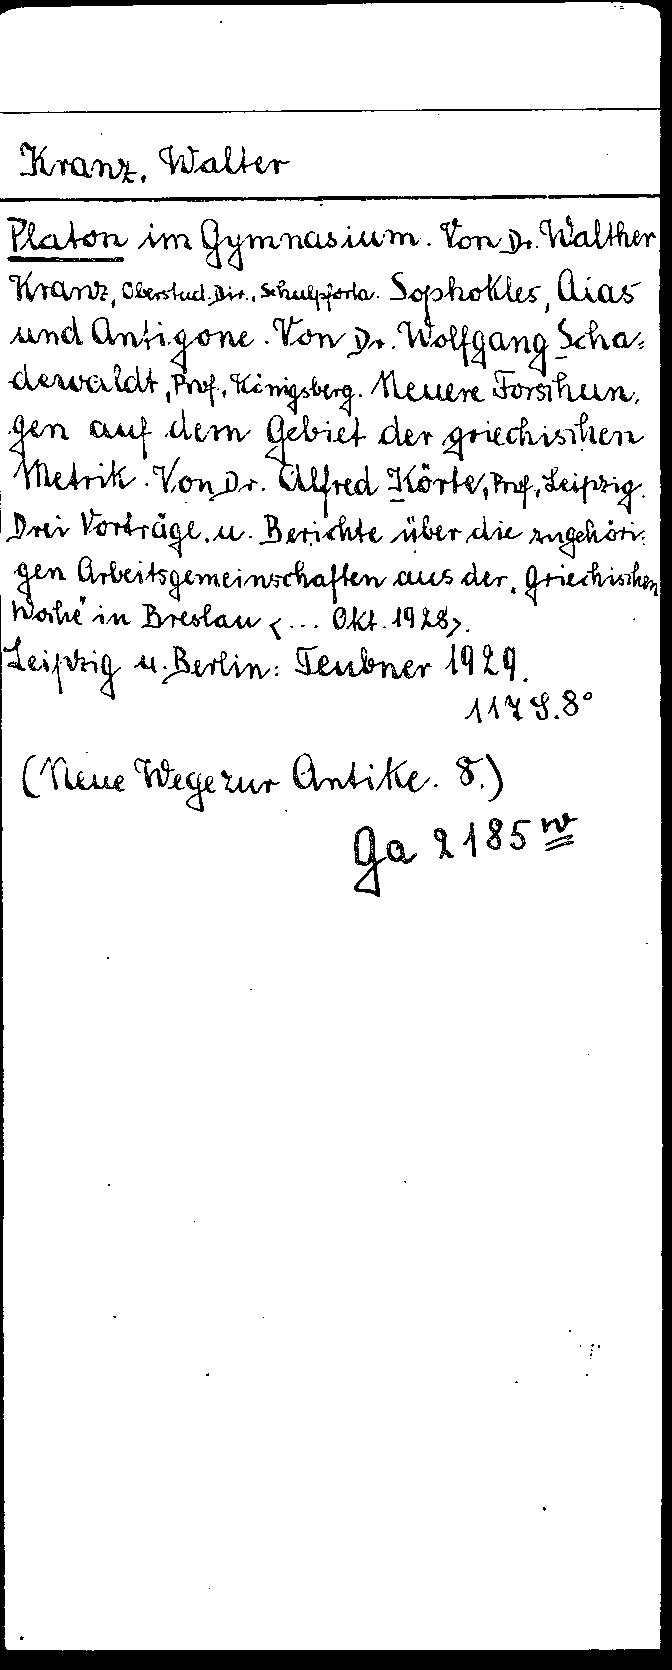 Kranz, Walter
Platon im Gymnasium. Von Dr. Walther
Kranz, Oberstud. Dir., Schulpforta. Sophokles, Aias
und Antigone. Von Dr. Wolfgang Scha-
dewaldt, Prof., Königsberg. Neuere Forschun-
gen auf dem Gebiet der griechischen
Metrik. Von Dr. Alfred Körte, Prof., Leipzig.
Drei Vorträge. u. Berichte über die zugehöri-
gen Arbeitsgemeinschaften aus der „Griechischen
Woche" in Breslau <... Okt. 1928>.
Leipzig u. Berlin: Teubner 1929.
117 S. 8°
(Neue Wege zur Antike. 8.)
Ga 2185 w